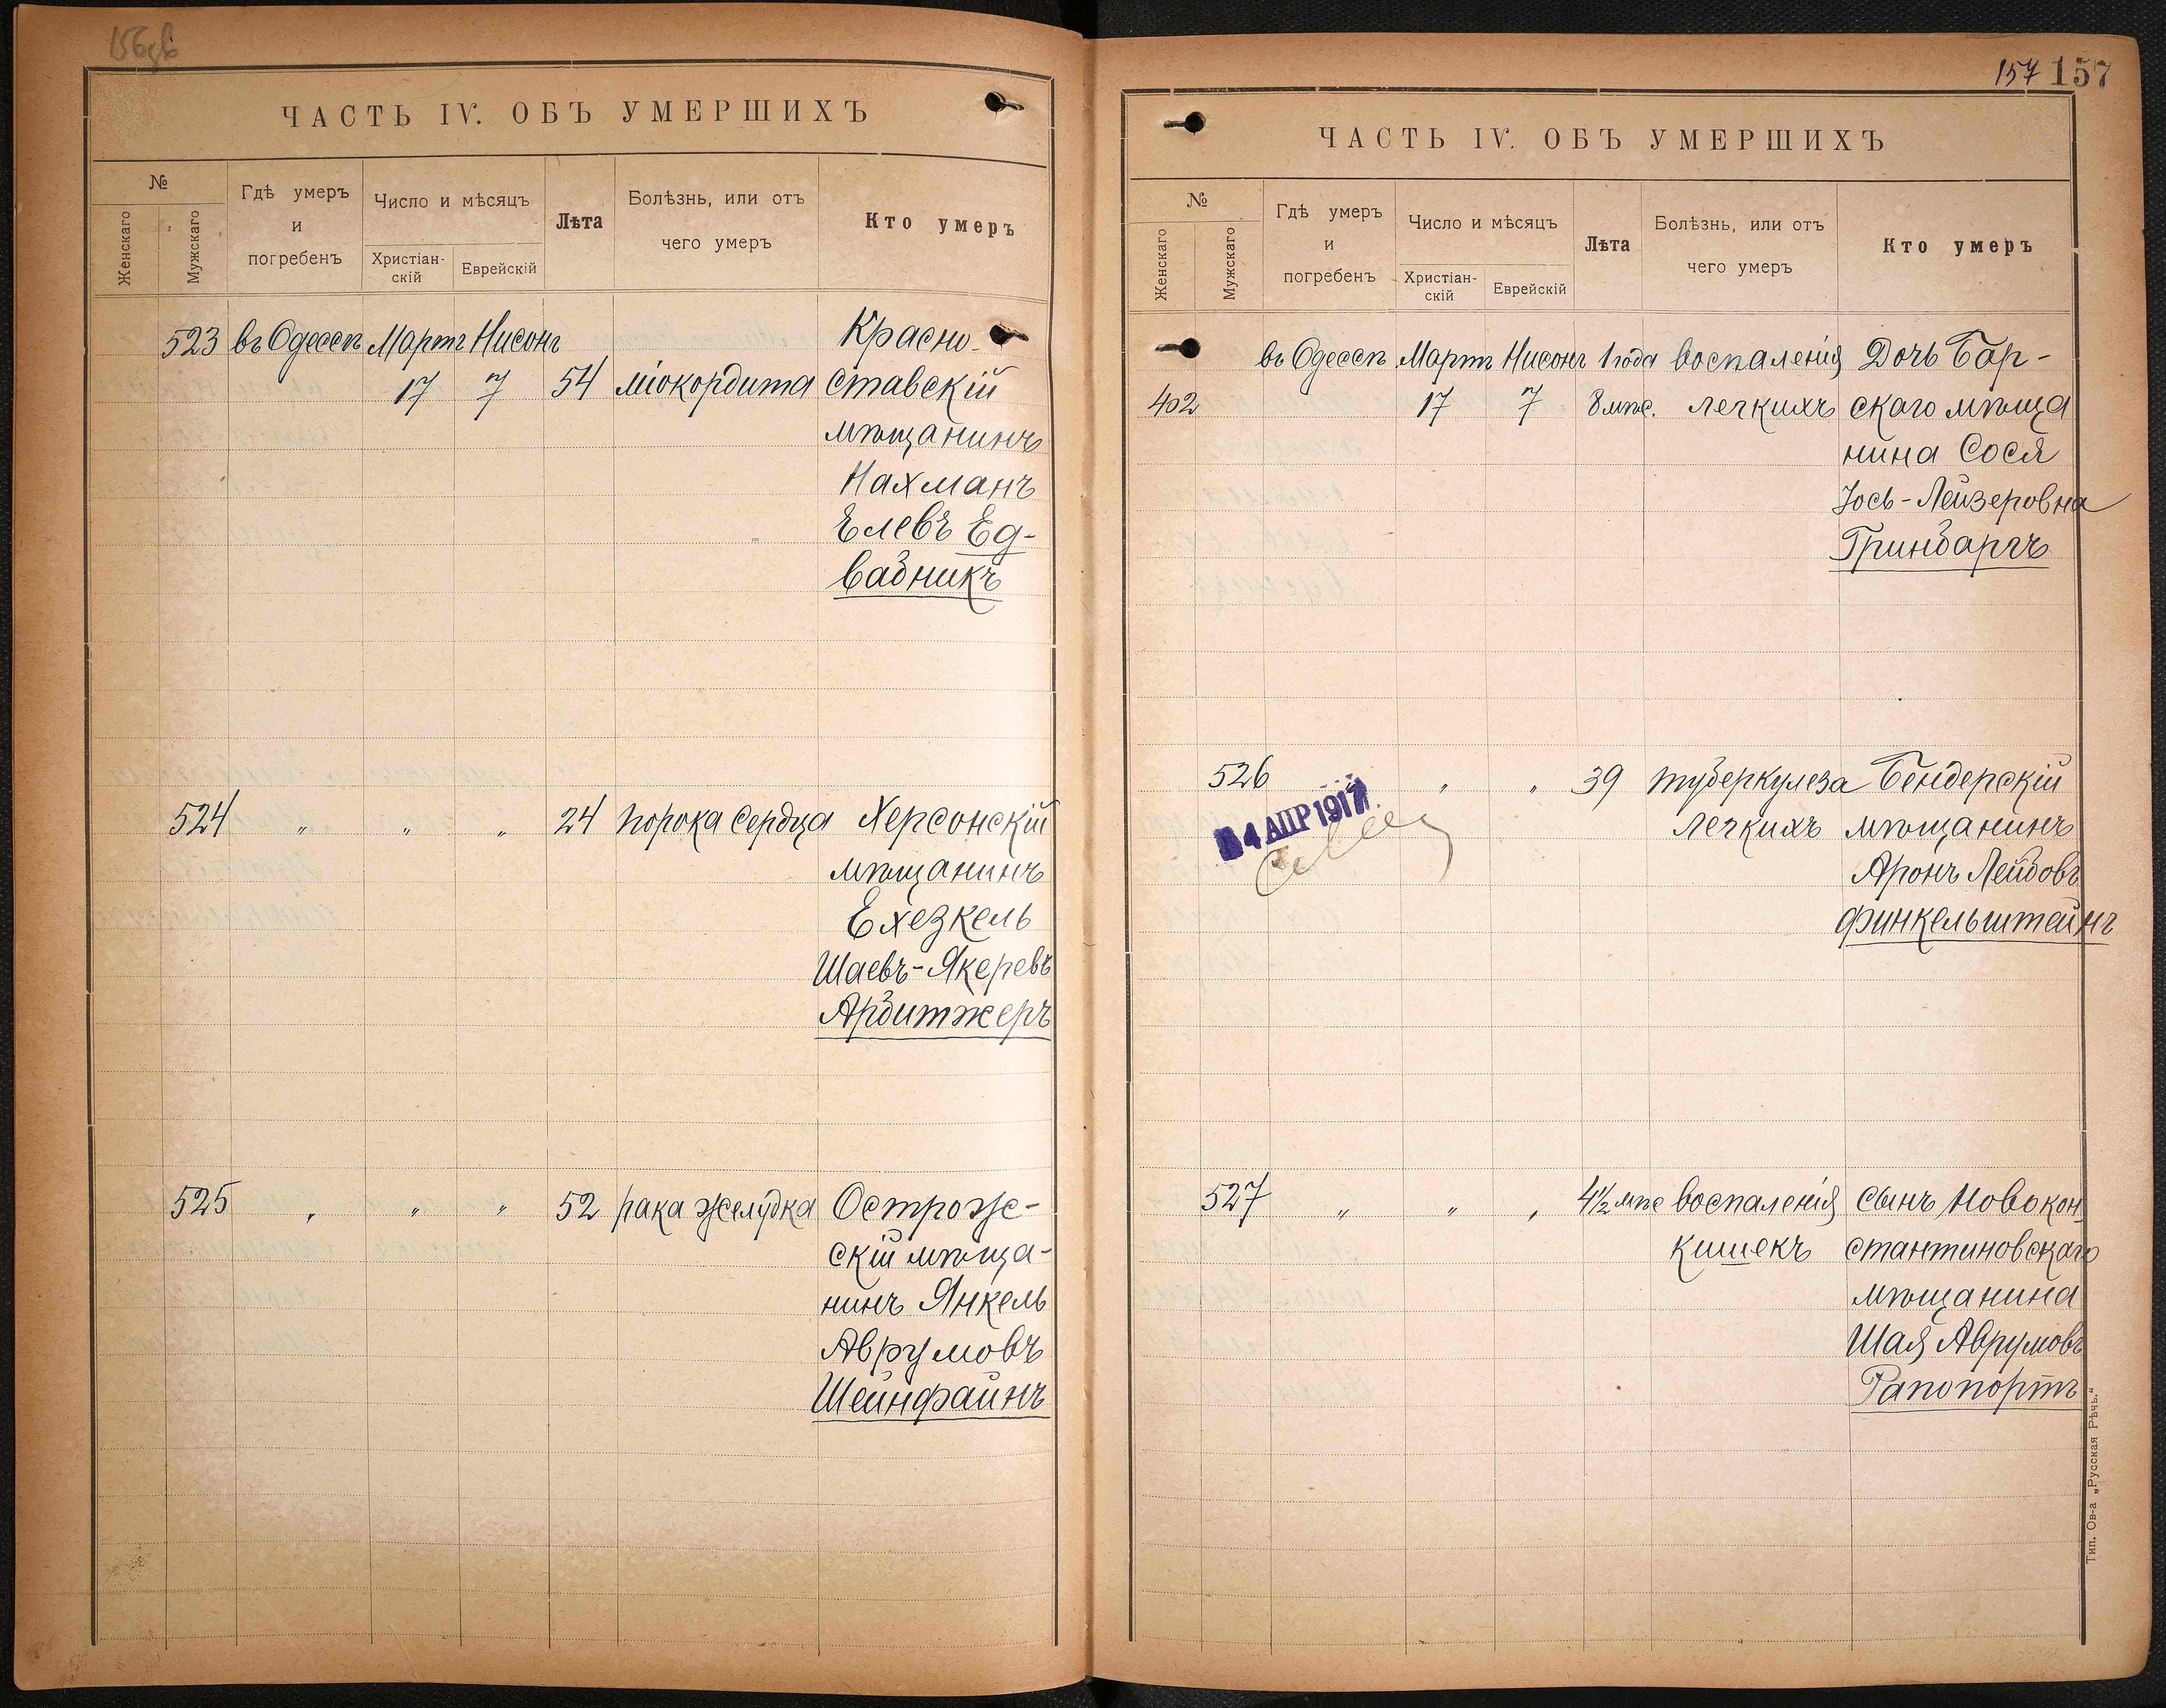 ЧАСТЬ IV. ОБЪ УМЕРШИХЪ
№
Женскаго
Мужскаго
Гдѣ умеръ
и
погребенъ
Число и мѣсяцъ
Христіан-
скій
Еврейскій
Лѣта
Болѣзнь, или отъ
чего умеръ
Кто умеръ
523 въ Одессѣ Мартъ Нисонъ Красно-
17 7 54 міокордита ставскій
мѣщанинъ
Нахманъ
Елевъ Ед-
вабникъ
524 " " " 24 порока сердца Херсонскій
мѣщанинъ
Ехезкель
Шаевъ-Якеревъ
Арбитжеръ
525 " " " 52 рака желудка Острож-
скій мѣща-
нинъ Янкель
Аврумовъ
Шейнфайнъ
157 157
ЧАСТЬ IV. ОБЪ УМЕРШИХЪ
№
Женскаго
Мужскаго
Гдѣ умеръ
и
погребенъ
Число и мѣсяцъ
Христіан-
скій
Еврейскій
Лѣта
Болѣзнь, или отъ
чего умеръ
Кто умеръ
въ Одессѣ Мартъ Нисонъ 1 года воспаленія Дочь Бар-
402 17 7 8 мѣс. легкихъ скаго мѣща
нина Сося
Іось-Лейзеровна
Гринбаргъ
526 " " " 39 туберкулеза Бендерскій
4 АПР 1917
легкихъ мѣщанинъ
Аронъ Лейбовъ
Финкельштейнъ
527 " " " 4½ мѣс воспаленія сынъ Новокон
кишекъ стантиновскаго
мѣщанина
Шая Аврумовъ
Рапопортъ
Тип. Ов-а „Русская Рѣчь.“